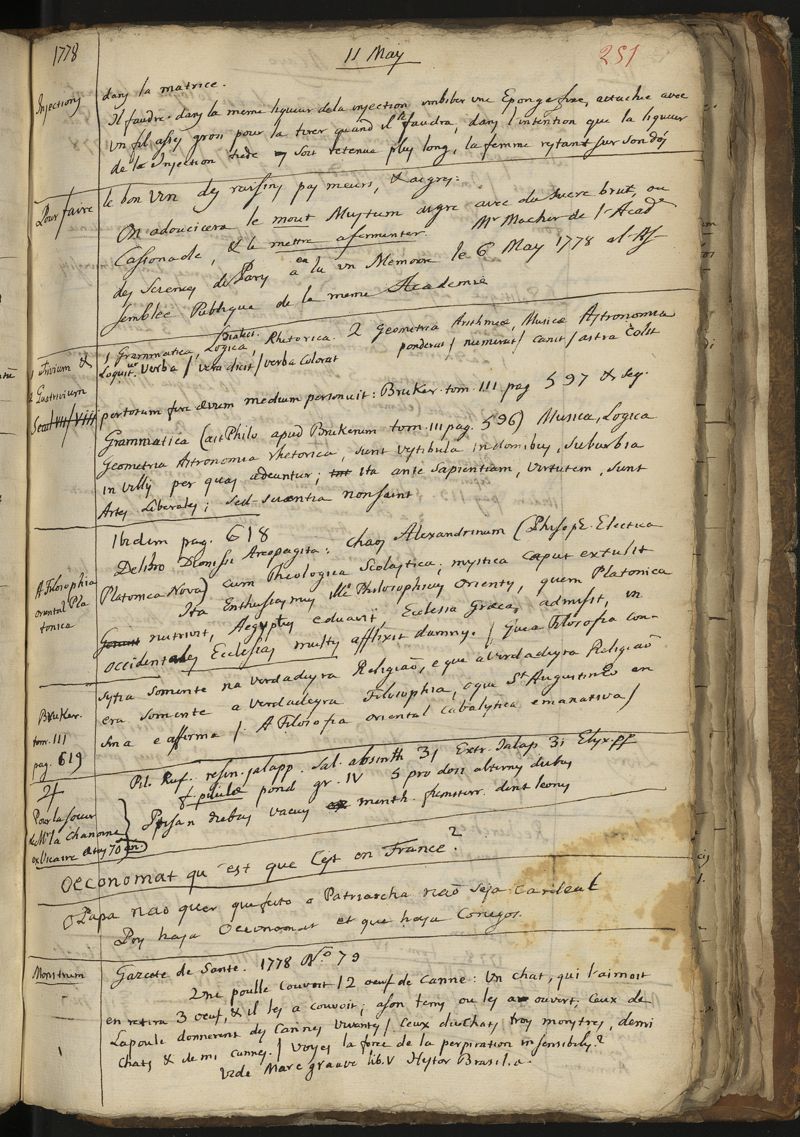 1778
11 May
251
Injections
dans la matrice.
Il faudra dans la meme liqueur de la injection imbiber une Eponge fixe, attachée avec
un fil assez gros pour la tirer quand il le faudra, dans l'intention que la liqueur
de la Injection tiede soit retenue plus long, la femme restant sur son dos
Pour faire le bon Vin des raisins pas meurs, & aigres:
On adoucicera le mout Mustum aigre avec du sucre brut, ou
Cassonade, & le mettre a fermenter. Mr Macher de l'Acade
des Sciences de Pary en a lu un Memoire le 6 May 1778 al As
semblée Publique de la meme Academie
1 Trivium &
2 Quatrivium
Secul VII/VIII
1 Grammatica, Dialect. Logica, Rhetorica. 2 Geometria Arithmea, Musica Astronomia
Loquitur Verba / vera dicit / verba Colorat ponderat / numerat / canit / astra Colit
per totum fere ævum medium personuit: Bruker. tom. III pag 597 & seq.
Grammatica (ait Philo apud Brukerum tom. III pag. 596) Musica, Logica
Geometria Astronomia rhetorica, sunt vestibula in domibus, suburbia
in villis per quas adeuntur; ita ante Sapientiam, virtutem, sunt
Artes Liberales; sed scientia non sunt
Ibidem pag. 618
A Filosophia
oriental Pla
tonica
De libro Dionisii Areopagita: chaos Alexandrinum (Philosoph. Electica
Platonica Nova) cum Theologica Scolastica; mystica caput extulit
Ita Enthusiasmus ille Philosophicus Orientis, quem Platonica
nutrivit, Aegyptus eduavit, Ecclesia Græca, admisit, in
occidentales Ecclesias multis afflixit damnis. / Que a Filosofia con-
sistia somente na verdadeyra Religiaõ, e que a verdadeyra Religiaõ
era somente a verdadeyra Filosophia, o que St Augustinho en
sina e affirma /. A Filosofia oriental Cabalytica emanativa /
Bruker.
tom. III
pag. 619
Pour la soeur
de Mr la Chanoine
ex Vicaire etas 70 an.
Pil. Ruf. resin. jalapp. Sal. absinth 31 Extr. Jalap 3i Elyx. pp
pilulæ pond gr. IV 5 pro dosi alternis diebus
Ptisan diebus vacuis menth. summitt. dent leonis
Oeconomat qu'est que C'est en France?
O Papa naõ quer que feito o Patriarcha naõ seja Cardeal
Pois haja Oeconomat et que haja Conegos.
Monstrum
Gazete de Sante. 1778 No 79
Une poulle couvoit 12 oeuf de Canne: Un chat, qui l'aimoit
en retira 3 oeuf, & il les a couvoit; a son tems ou les a ouvert; Ceux de
La poule donnerent des Cannes vivants / Ceux du Chat, troys monstres, demi
Chats & demi cannes. / Voyes la force de la perpiration insensibles?
Vide Marcgraave lib. V Hystor Brasil.a.